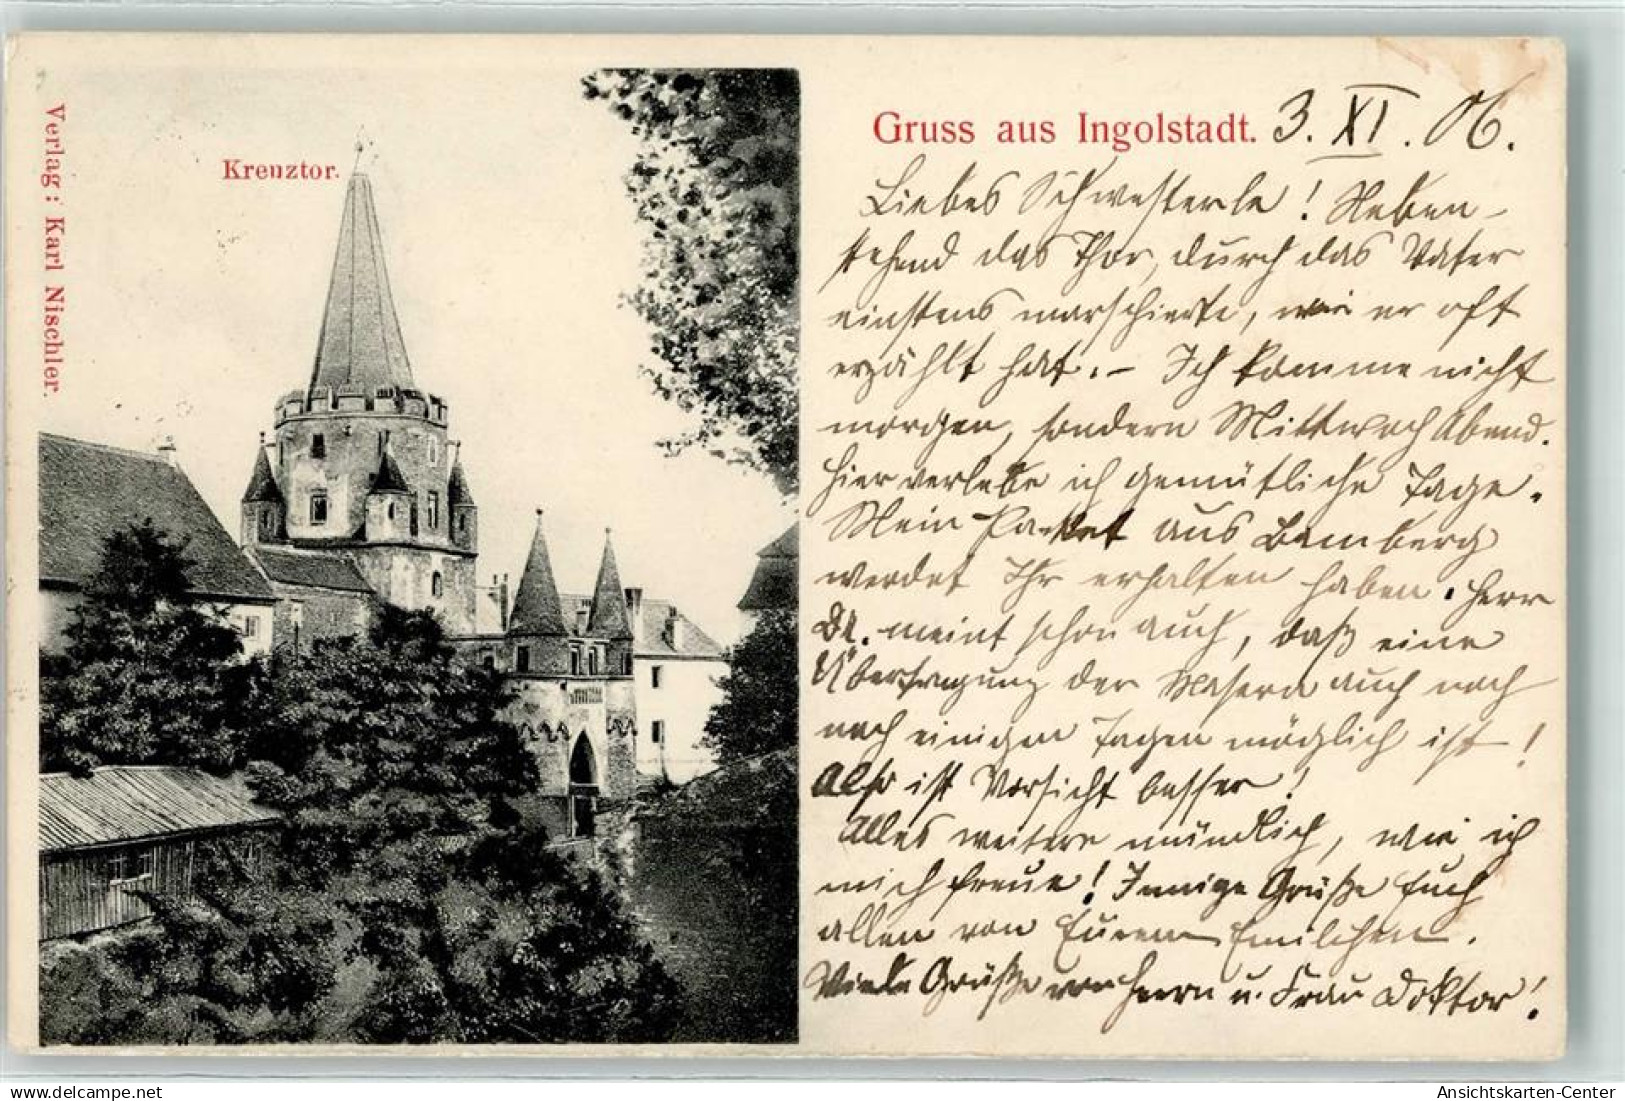 Verlag: Karl Nischler.
Kreuztor.
Gruss aus Ingolstadt. 3. XI. 06.
Liebes Schwesterle! Neben-
stehend das Thor, durch das Vater
einstens marschierte, wie er oft
erzählt hat. – Ich komme nicht
morgen, sondern Mittwoch Abend.
Hier verlebe ich gemütliche Tage.
Mein Packet aus Bamberg
werdet Ihr erhalten haben. Herr
Dr. meint schon auch, daß eine
Übertragung der Masern auch noch
nach einigen Tagen möglich ist!
Also ist Vorsicht besser!
Alles weitere mündlich, wie ich
mich freue! Innige Grüße Euch
allen von Eurem Emilchen.
Viele Grüße von Herrn u. Frau Doktor!
Ansichtskarten-Center
www.delcampe.net